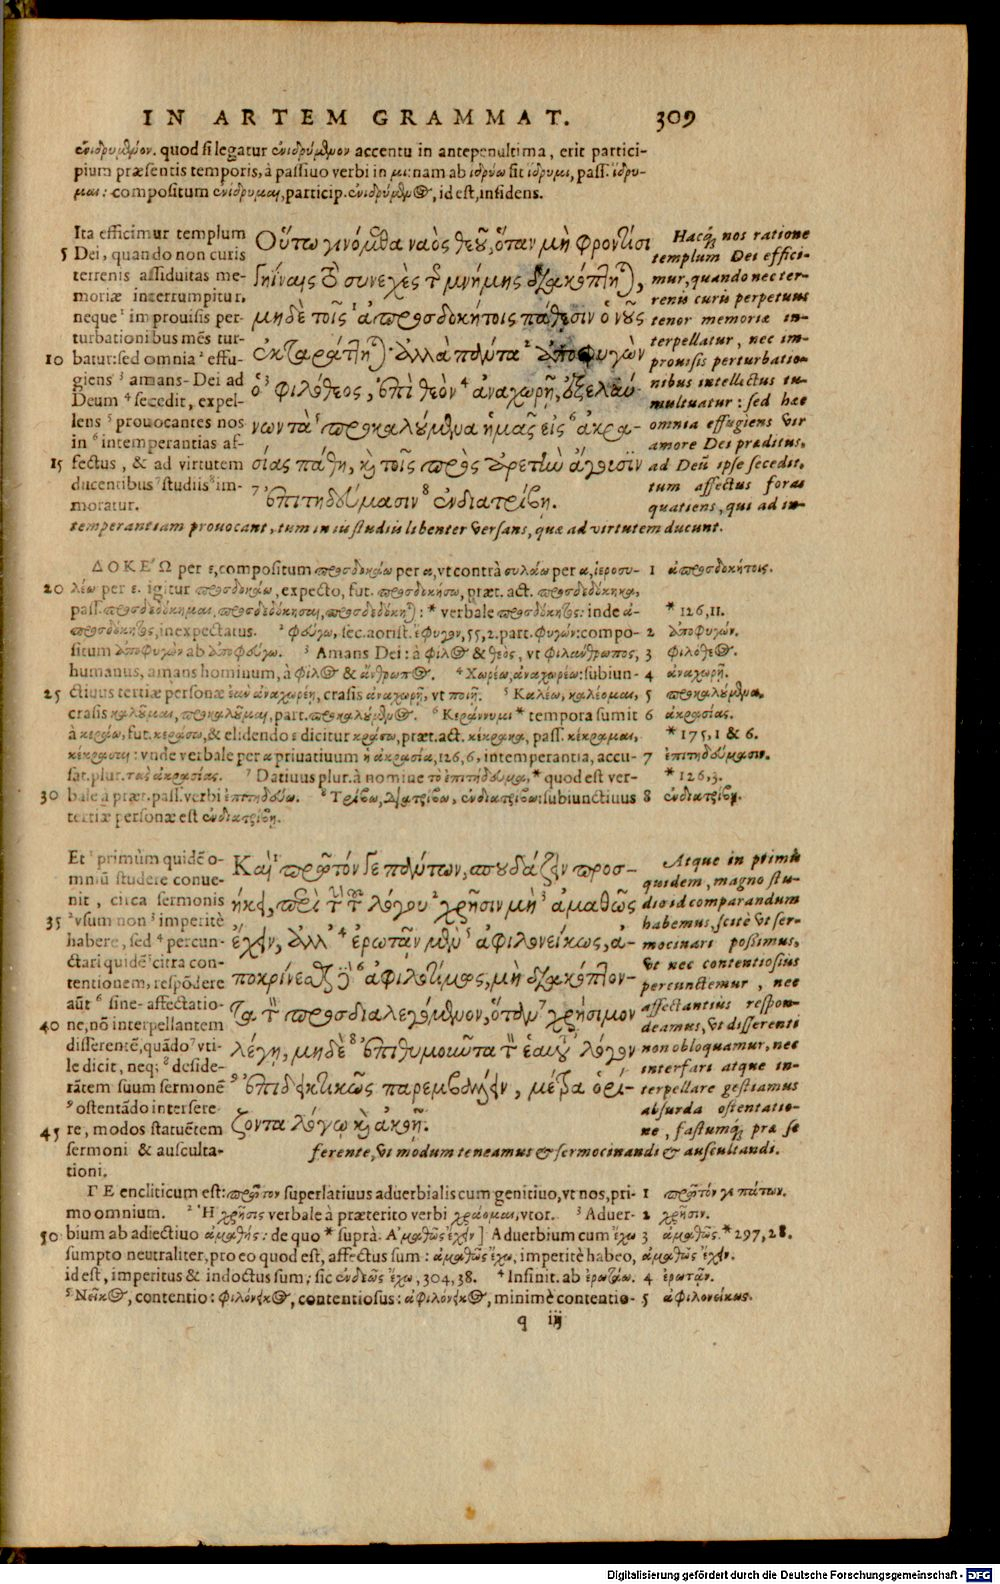 IN ARTEM GRAMMAT. 309
ἐνιδρυμένον. quod si legatur ἐνιδρύμενον accentu in antepenultima, erit partici-
pium præsentis temporis, à passiuo verbi in μι: nam ab ἱδρύω fit ἵδρυμι, pass. ἵδρυ-
μαι: compositum ἐνίδρυμαι, particip. ἐνιδρύμενος, id est, insidens.
Ita efficimur templum
5 Dei, quando non curis
terrenis assiduitas me-
moriæ interrumpitur,
neque ¹ improuisis per-
turbationibus mēs tur-
10 batur: sed omnia ² effu-
giens ³ amans-Dei ad
Deum ⁴ secedit, expel-
lens ⁵ prouocantes nos
in ⁶ intemperantias af-
15 fectus, & ad virtutem
ducentibus ⁷ studiis ⁸ im-
moratur.
Οὕτω γινόμεθα ναὸς θεοῦ, ὅταν μὴ φροντίσι
γηΐναις τὸ συνεχὲς τῆς μνήμης διακόπτηται,
μηδὲ τοῖς ¹ ἀπροσδοκήτοις πάθεσιν ὁ νοῦς
ἐκταράττηται· ἀλλὰ πάντα ² ἀποφυγὼν
ὁ ³ φιλόθεος, ἐπὶ θεὸν ⁴ ἀναχωρῇ, ἐξελαύ-
νων τὰ ⁵ προκαλούμενα ἡμᾶς εἰς ⁶ ἀκρα-
σίας πάθη, καὶ τοῖς πρὸς ἀρετὴν ἄγουσιν
⁷ ἐπιτηδεύμασιν ⁸ ἐνδιατρίβῃ.
Hacq; nos ratione
templum Dei effici-
mur, quando nec ter-
renis curis perpetuus
tenor memoriæ in-
terpellatur, nec im-
prouisis perturbatio-
nibus intellectus tu-
multuatur: sed hæc
omnia effugiens vir
amore Dei præditus,
ad Deū ipse secedit,
tum affectus foras
quatiens, qui ad in-
temperantiam prouocant, tum in iis studiis libenter versans, quæ ad virtutem ducunt.
ΔΟΚΕΩ per ε, compositum προσδοκάω per α, vt contrà συλάω per α, ἱεροσυ- 1 ἀπροσδοκήτοις.
20 λέω per ε. igitur προσδοκάω, expecto, fut. προσδοκήσω, præt. act. προσδεδόκηκα,
pass. προσδεδόκημαι, προσδεδόκησαι, προσδεδόκηται: * verbale προσδόκητος: inde ἀ- * 126,11.
προσδόκητος, inexpectatus. ² φεύγω, sec. aorist. ἔφυγον, 55, 2. part. φυγών: compo- 2 ἀποφυγών.
situm ἀποφυγὼν ab ἀποφεύγω. ³ Amans Dei: à φίλος & θεός, vt φιλάνθρωπος, 3 φιλόθεος.
humanus, amans hominum, à φίλος & ἄνθρωπος. ⁴ Χωρέω, ἀναχωρέω: subiun- 4 ἀναχωρῇ.
25 ctiuus tertiæ personæ ἐὰν ἀναχωρέῃ, crasis ἀναχωρῇ, vt ποιῇ. ⁵ Καλέω, καλέομαι, 5 προκαλούμενα.
crasis καλοῦμαι, προκαλοῦμαι, part. προκαλούμενος. ⁶ Κεράννυμι * tempora sumit 6 ἀκρασίας.
à κεράω, fut. κεράσω, & elidendo ε dicitur κράσω, præt. act. κέκρακα, pass. κέκραμαι, * 175, 1 & 6.
κέκρασαι: vnde verbale per α priuatiuum ἡ ἀκρασία, 126, 6, intemperantia, accu- 7 ἐπιτηδεύμασιν.
sat. plur. τὰς ἀκρασίας. ⁷ Datiuus plur. à nomine τὸ ἐπιτήδευμα, * quod est ver- * 126,3.
30 bale à præt. pass. verbi ἐπιτηδεύω. ⁸ Τρίβω, διατρίβω, ἐνδιατρίβω: subiunctiuus 8 ἐνδιατρίβῃ.
tertiæ personæ est ἐνδιατρίβῃ.
Et ¹ primùm quidē o-
mniū studere conue-
nit, circa sermonis
35 ² vsum non ³ imperitè
habere, sed ⁴ percun-
ctari quidē ⁵ citra con-
tentionem, respōdere
aūt ⁶ sine-affectatio-
40 ne, nō interpellantem
disserentē, quādo ⁷ vti-
le dicit, neq; ⁸ deside-
rātem suum sermonē
⁹ ostentādo intersere-
45 re, modos statuētem
sermoni & ausculta-
tioni.
Καὶ ¹ πρῶτόν γε πάντων, σπουδάζειν προσ-
ήκει, περὶ τὴν τοῦ λόγου ² χρῆσιν μὴ ³ ἀμαθῶς
ἔχειν, ἀλλ' ⁴ ἐρωτᾶν μὲν ⁵ ἀφιλονείκως, ἀ-
ποκρίνεσθαι δὲ ⁶ ἀφιλοτίμως, μὴ διακόπτον-
τα τὸν προσδιαλεγόμενον, ὅταν ⁷ χρήσιμον
λέγῃ, μηδὲ ⁸ ἐπιθυμοῦντα τὸν ἑαυτοῦ λόγον
⁹ ἐπιδεικτικῶς παρεμβάλλειν, μέτρα ὁρί-
ζοντα λόγῳ καὶ ἀκοῇ.
Atque in primis
quidem, magno stu-
dio id comparandum
habemus, scitè vt ser-
mocinari possimus,
vt nec contentiosius
percunctemur, nec
affectantius respon-
deamus, vt disserenti
non obloquamur, nec
interfari atque in-
terpellare gestiamus
absurda ostentatio-
ne, fastumq; præ se
ferente, vt modum teneamus & sermocinandi & auscultandi.
ΓΕ encliticum est: πρῶτον superlatiuus aduerbialis cum genitiuo, vt nos, pri- 1 πρῶτόν γε πάντων.
mo omnium. ² Ἡ χρῆσις verbale à præterito verbi χράομαι, vtor. ³ Aduer- 2 χρῆσιν.
50 bium ab adiectiuo ἀμαθής: de quo * suprà. Ἀμαθῶς ἔχειν] Aduerbium cum ἔχω 3 ἀμαθῶς. * 297, 28.
sumpto neutraliter, pro eo quod est, affectus sum: ἀμαθῶς ἔχω, imperitè habeo, ἀμαθῶς ἔχειν.
id est, imperitus & indoctus sum; sic ἐνδεῶς ἔχω, 304, 38. ⁴ Infinit. ab ἐρωτάω. 4 ἐρωτᾶν.
⁵ Νεῖκος, contentio: φιλόνεικος, contentiosus: ἀφιλόνεικος, minimè contentio- 5 ἀφιλονείκως.
q iij
Digitalisierung gefördert durch die Deutsche Forschungsgemeinschaft - DFG